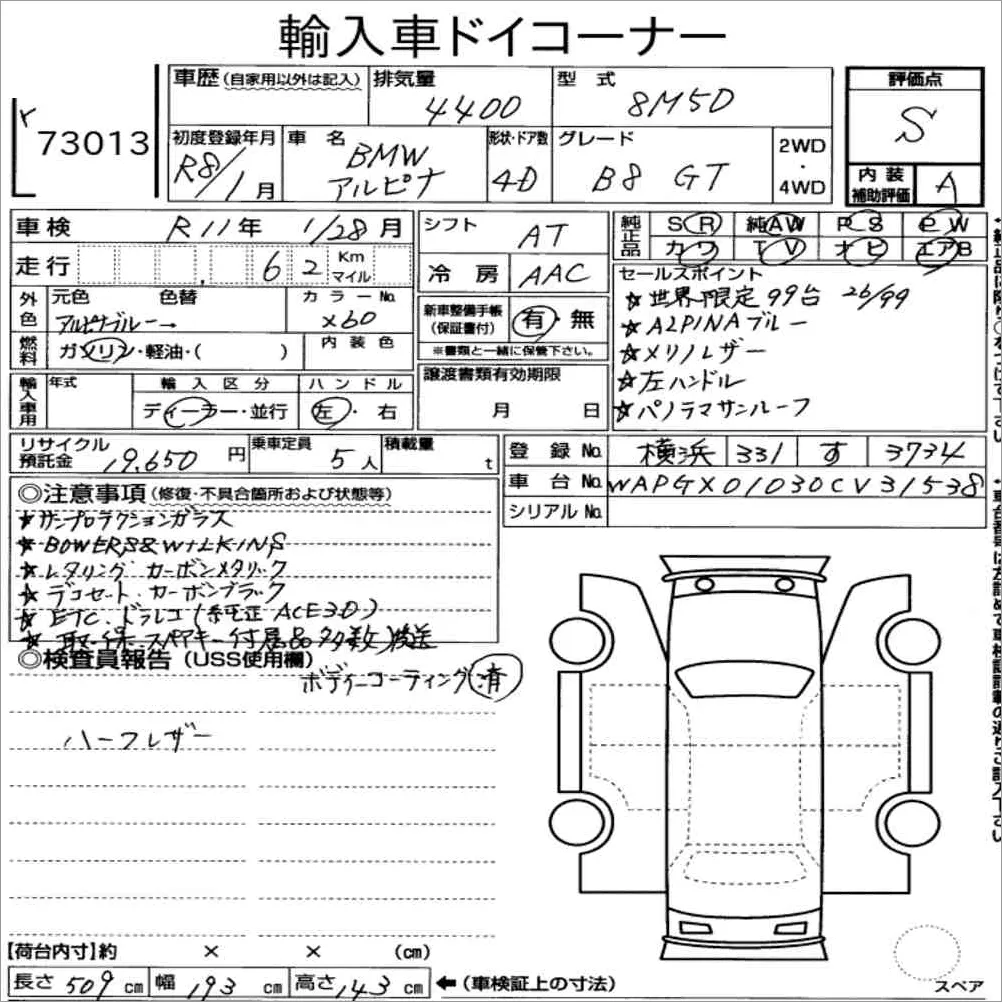 輸入車ドイコーナー
73013
車歴(自家用以外は記入) 排気量 4400 型式 8M5D
評価点 S
初度登録年月 R8/1月 車名 BMW アルピナ 形状・ドア数 4D グレード B8 GT 2WD・4WD
内装補助評価 A
車検 R11年 1/28月
走行 62 Km マイル
シフト AT
冷房 AAC
純正品 SR 純AW PS PW
カワ TV ナビ エアB
外色 元色 色替 カラーNo.
アルピナブルー→ X60
燃料 ガソリン・軽油・( ) 内装色
新車整備手帳(保証書付) 有・無
※書類と一緒に保管下さい。
輸入車用 年式 輸入区分 ハンドル
ディーラー・並行 左・右
譲渡書類有効期限
月 日
セールスポイント
☆世界限定99台 26/99
☆ALPINAブルー
☆メリノレザー
☆左ハンドル
☆パノラマサンルーフ
リサイクル預託金 19,650円 乗車定員 5人 積載量 t
登録No. 横浜 331 す 3734
車台No. WAPGX01030CV31538
シリアルNo.
◎注意事項(修復・不具合箇所および状態等)
☆サンプロテクションガラス
☆BOWERS&WILKINS
☆レタリング カーボンメタリック
☆デコセット カーボンブラック
☆ETC.ドラレコ(純正ACE3.0)
☆取・保・スペアキー付属品多数後送
◎検査員報告(USS使用欄)
ボディーコーティング済
ハーフレザー
【荷台内寸】約 × × (cm)
長さ 509 cm 幅 193 cm 高さ 143 cm ←(車検証上の寸法)
スペア